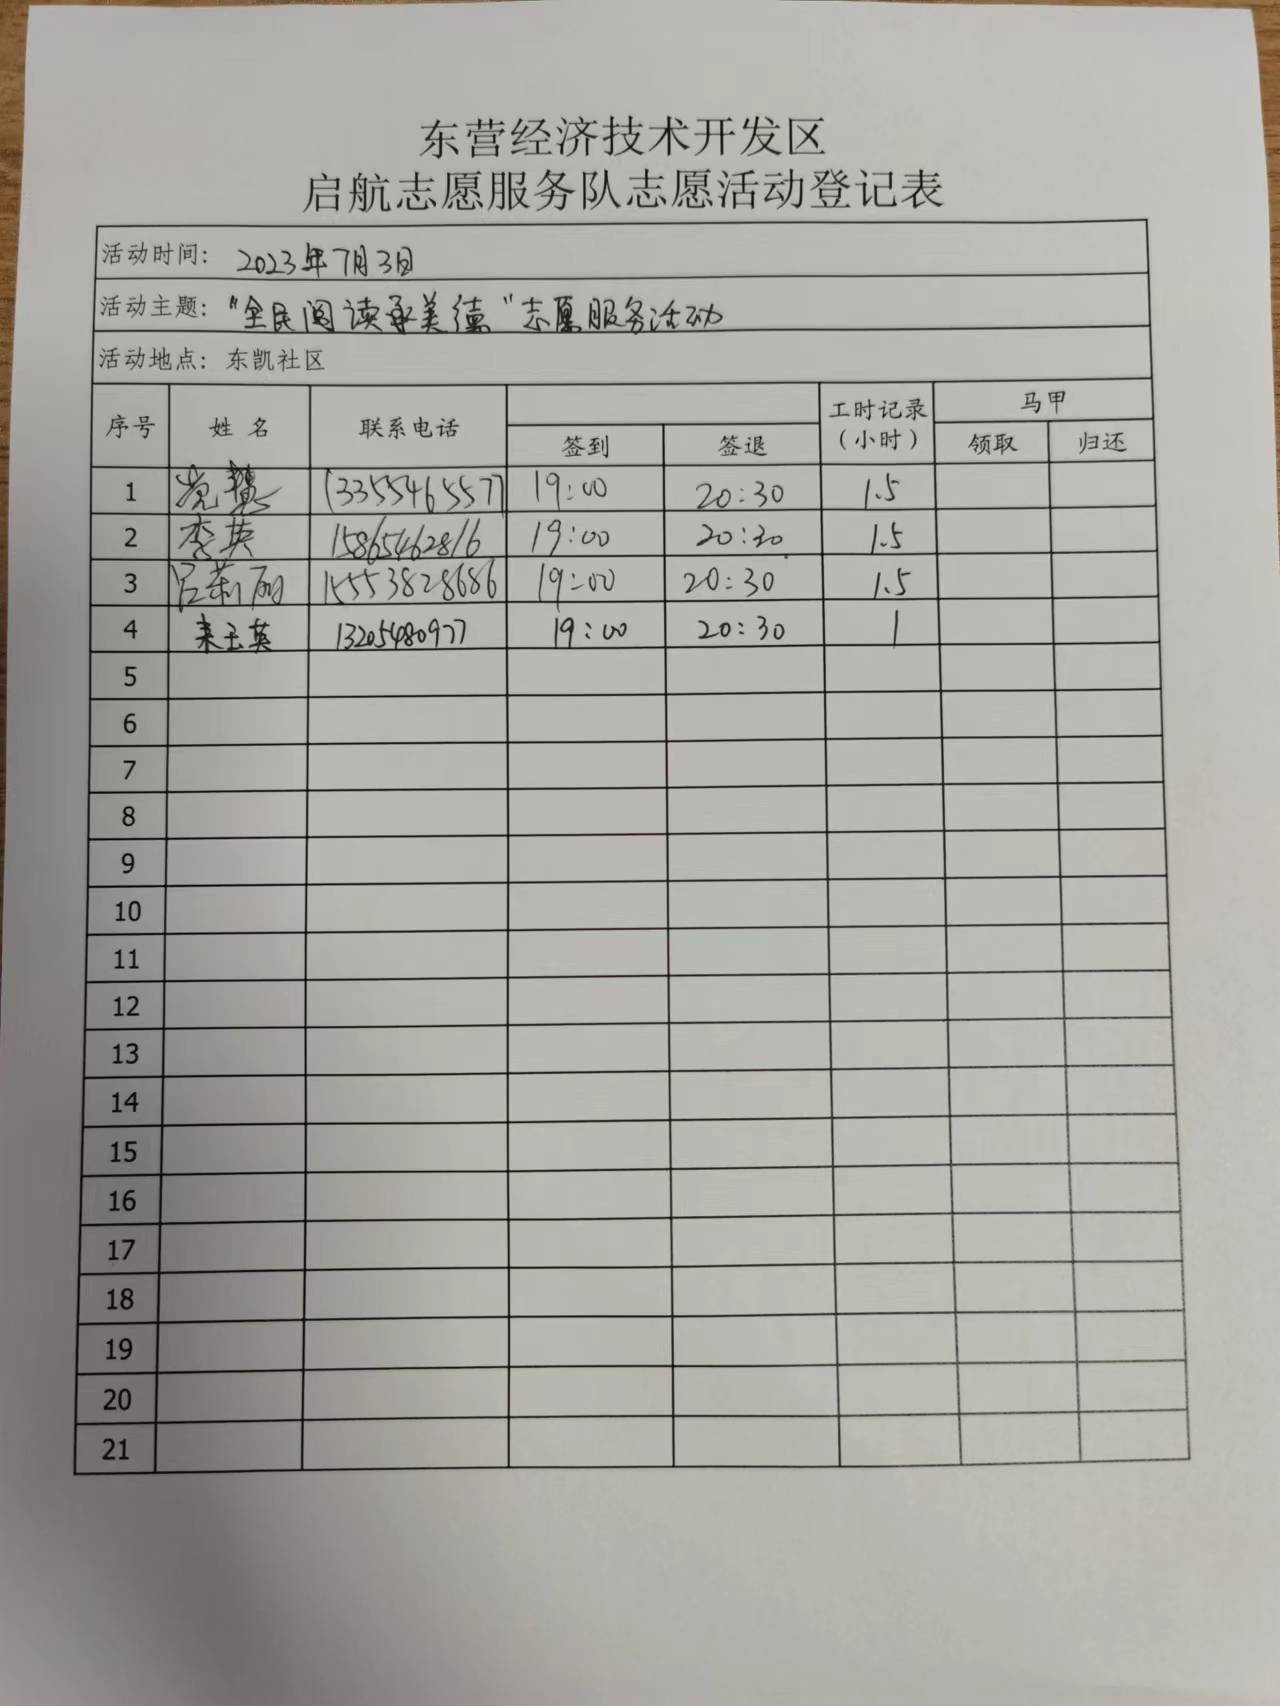 东营经济技术开发区
启航志愿服务队志愿活动登记表
活动时间： 2023年7月3日
活动主题：“全民阅读承美德”志愿服务活动
活动地点：东凯社区
序号 姓名 联系电话 签到 签退 工时记录（小时） 马甲 领取 归还
1 13355465577 19:00 20:30 1.5
2 李英 15865462816 19:00 20:30 1.5
3 吕莉丽 15553828686 19:00 20:30 1.5
4 来玉英 13205480977 19:00 20:30 1
5
6
7
8
9
10
11
12
13
14
15
16
17
18
19
20
21